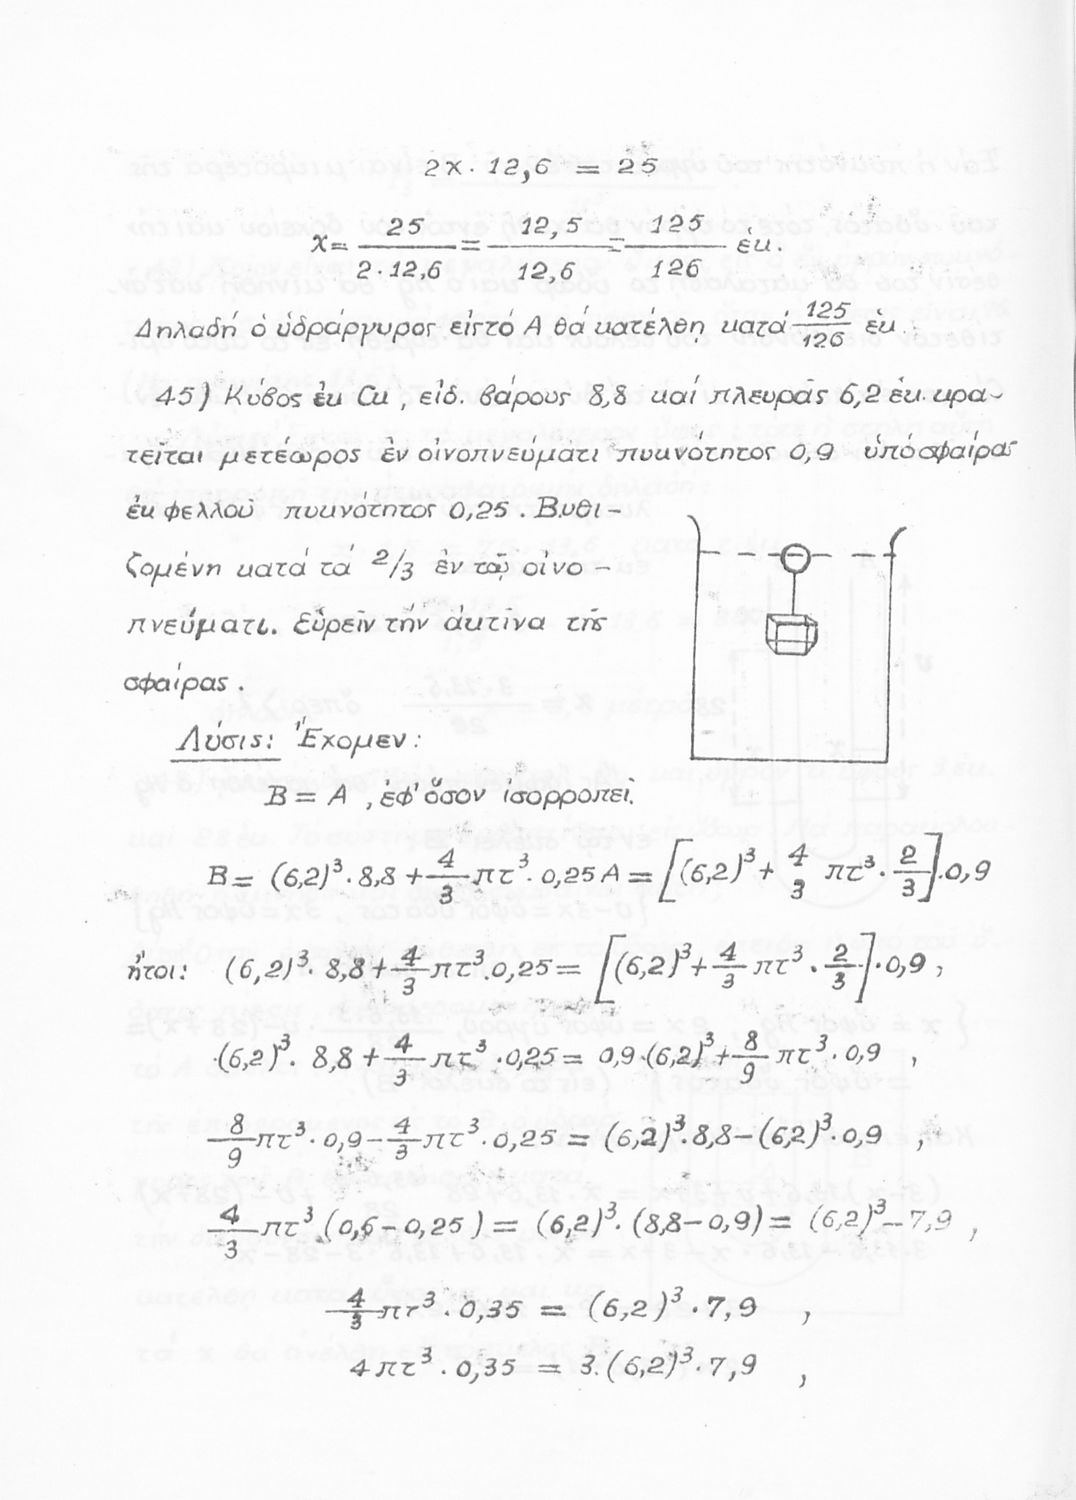 2x · 12,6 = 25
x = 25/(2·12,6) = 12,5/12,6 = 125/126 ἑκ.
Δηλαδή ὁ ὑδράργυρος εἰς τό Α θά κατέλθῃ κατά 125/126 ἑκ.
45) Κύβος ἐκ Cu, εἰδ. βάρους 8,8 καί πλευρᾶς 6,2 ἑκ. κρα-
τεῖται μετέωρος ἐν οἰνοπνεύματι πυκνότητος 0,9 ὑπό σφαίρας
ἐκ φελλοῦ πυκνότητος 0,25. Βυθι-
ζομένη κατά τά 2/3 ἐν τῷ οἰνο-
πνεύματι. Εὑρεῖν τήν ἀκτῖνα τῆς
σφαίρας.
Λύσις: Ἔχομεν:
Β = Α , ἐφ' ὅσον ἰσορροπεῖ.
Β = (6,2)³· 8,8 + 4/3 πτ³· 0,25 Α = [(6,2)³ + 4/3 πτ³ · 2/3]·0,9
ἤτοι: (6,2)³· 8,8 + 4/3 πτ³·0,25 = [(6,2)³ + 4/3 πτ³ · 2/3]·0,9 ,
(6,2)³· 8,8 + 4/3 πτ³ · 0,25 = 0,9·(6,2)³ + 8/9 πτ³ · 0,9 ,
8/9 πτ³ · 0,9 – 4/3 πτ³ · 0,25 = (6,2)³·8,8 – (6,2)³· 0,9 ,
4/3 πτ³ (0,6 – 0,25) = (6,2)³· (8,8 – 0,9) = (6,2)³ – 7,9 ,
4/3 πτ³ · 0,35 = (6,2)³ · 7,9 ,
4πτ³ · 0,35 = 3·(6,2)³· 7,9 ,